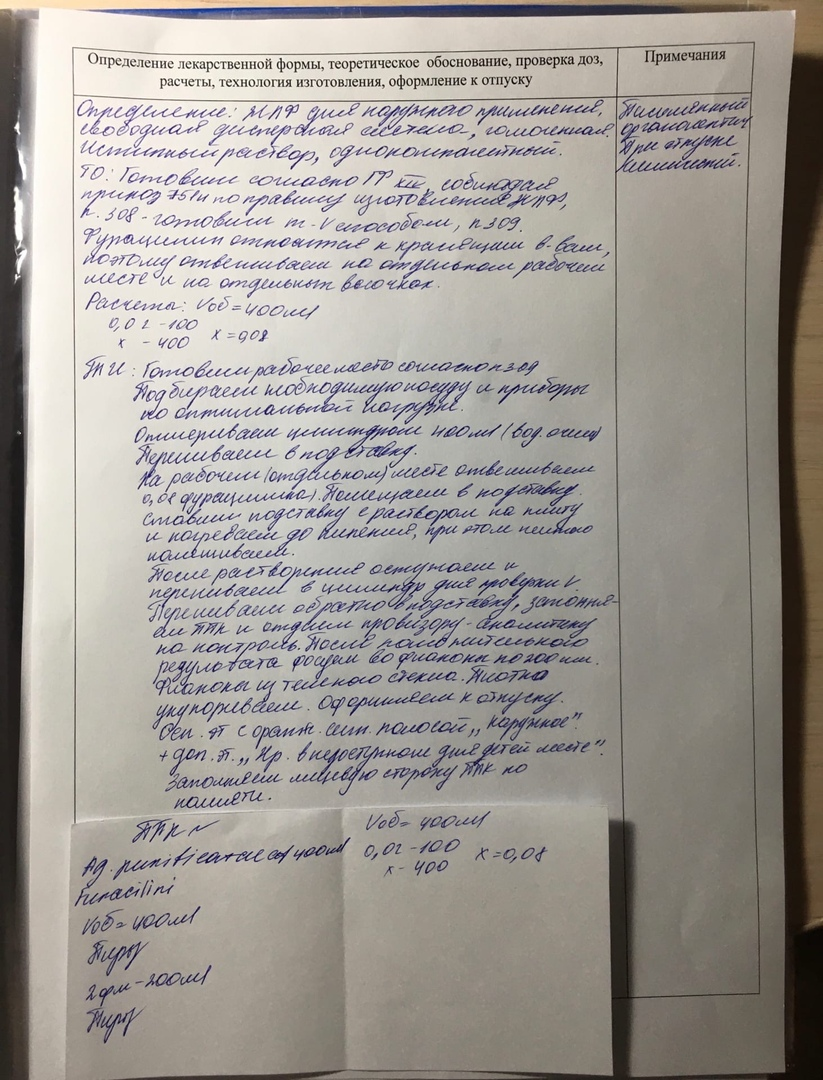 Определение лекарственной формы, теоретическое обоснование, проверка доз,
расчеты, технология изготовления, оформление к отпуску
Примечания
Определение: ЖЛФ для наружного применения,
свободная дисперсная система, гомогенная.
Истинный раствор, однокомпонентный.
Письменный
органолептич
При отпуске
Химический.
ТО: Готовим согласно ГФ, соблюдая
приказ 751н по правилу изготовления ЖЛФ,
п. 308 - готовим m-V способом, п 309.
Фурацилин относится к красящим в-вам,
поэтому отвешиваем на отдельном рабочем
месте и на отдельных весочках.
Расчеты: Vоб = 400мл
0,02 - 100
х - 400 х = 0,08
ТИ: Готовим рабочее место согласно п 309
Подбираем необходимую посуду и приборы
по оптимальной нагрузке.
Отмериваем цилиндром 400мл (вод. очищ)
Переливаем в подставку.
На рабочем (отдельном) месте отвешиваем
0,08 фурацилина). Помещаем в подставку.
Ставим подставку с раствором на плиту
и нагреваем до кипения, при этом
помешиваем.
После растворения остужаем и
переливаем в цилиндр для проверки V.
Переливаем обратно в подставку, заполня-
ем ППК и отдаем провизору-аналитику
на контроль. После положительного
результата во флаконы по 200мл.
Флаконы из темного стекла. Плотно
укупориваем. Оформляем к отпуску.
Осн. эт с оранж. сигн. полосой „Наружное".
+ доп. эт. „Хр. в недоступном для детей месте".
Заполняем лицевую сторону ППК по
памяти.
ППК №
Aq. purificatae 400мл
Furacilini
Vоб = 400мл
2 фл - 200мл
Vоб = 400мл
0,02 - 100 х = 0,08
х - 400